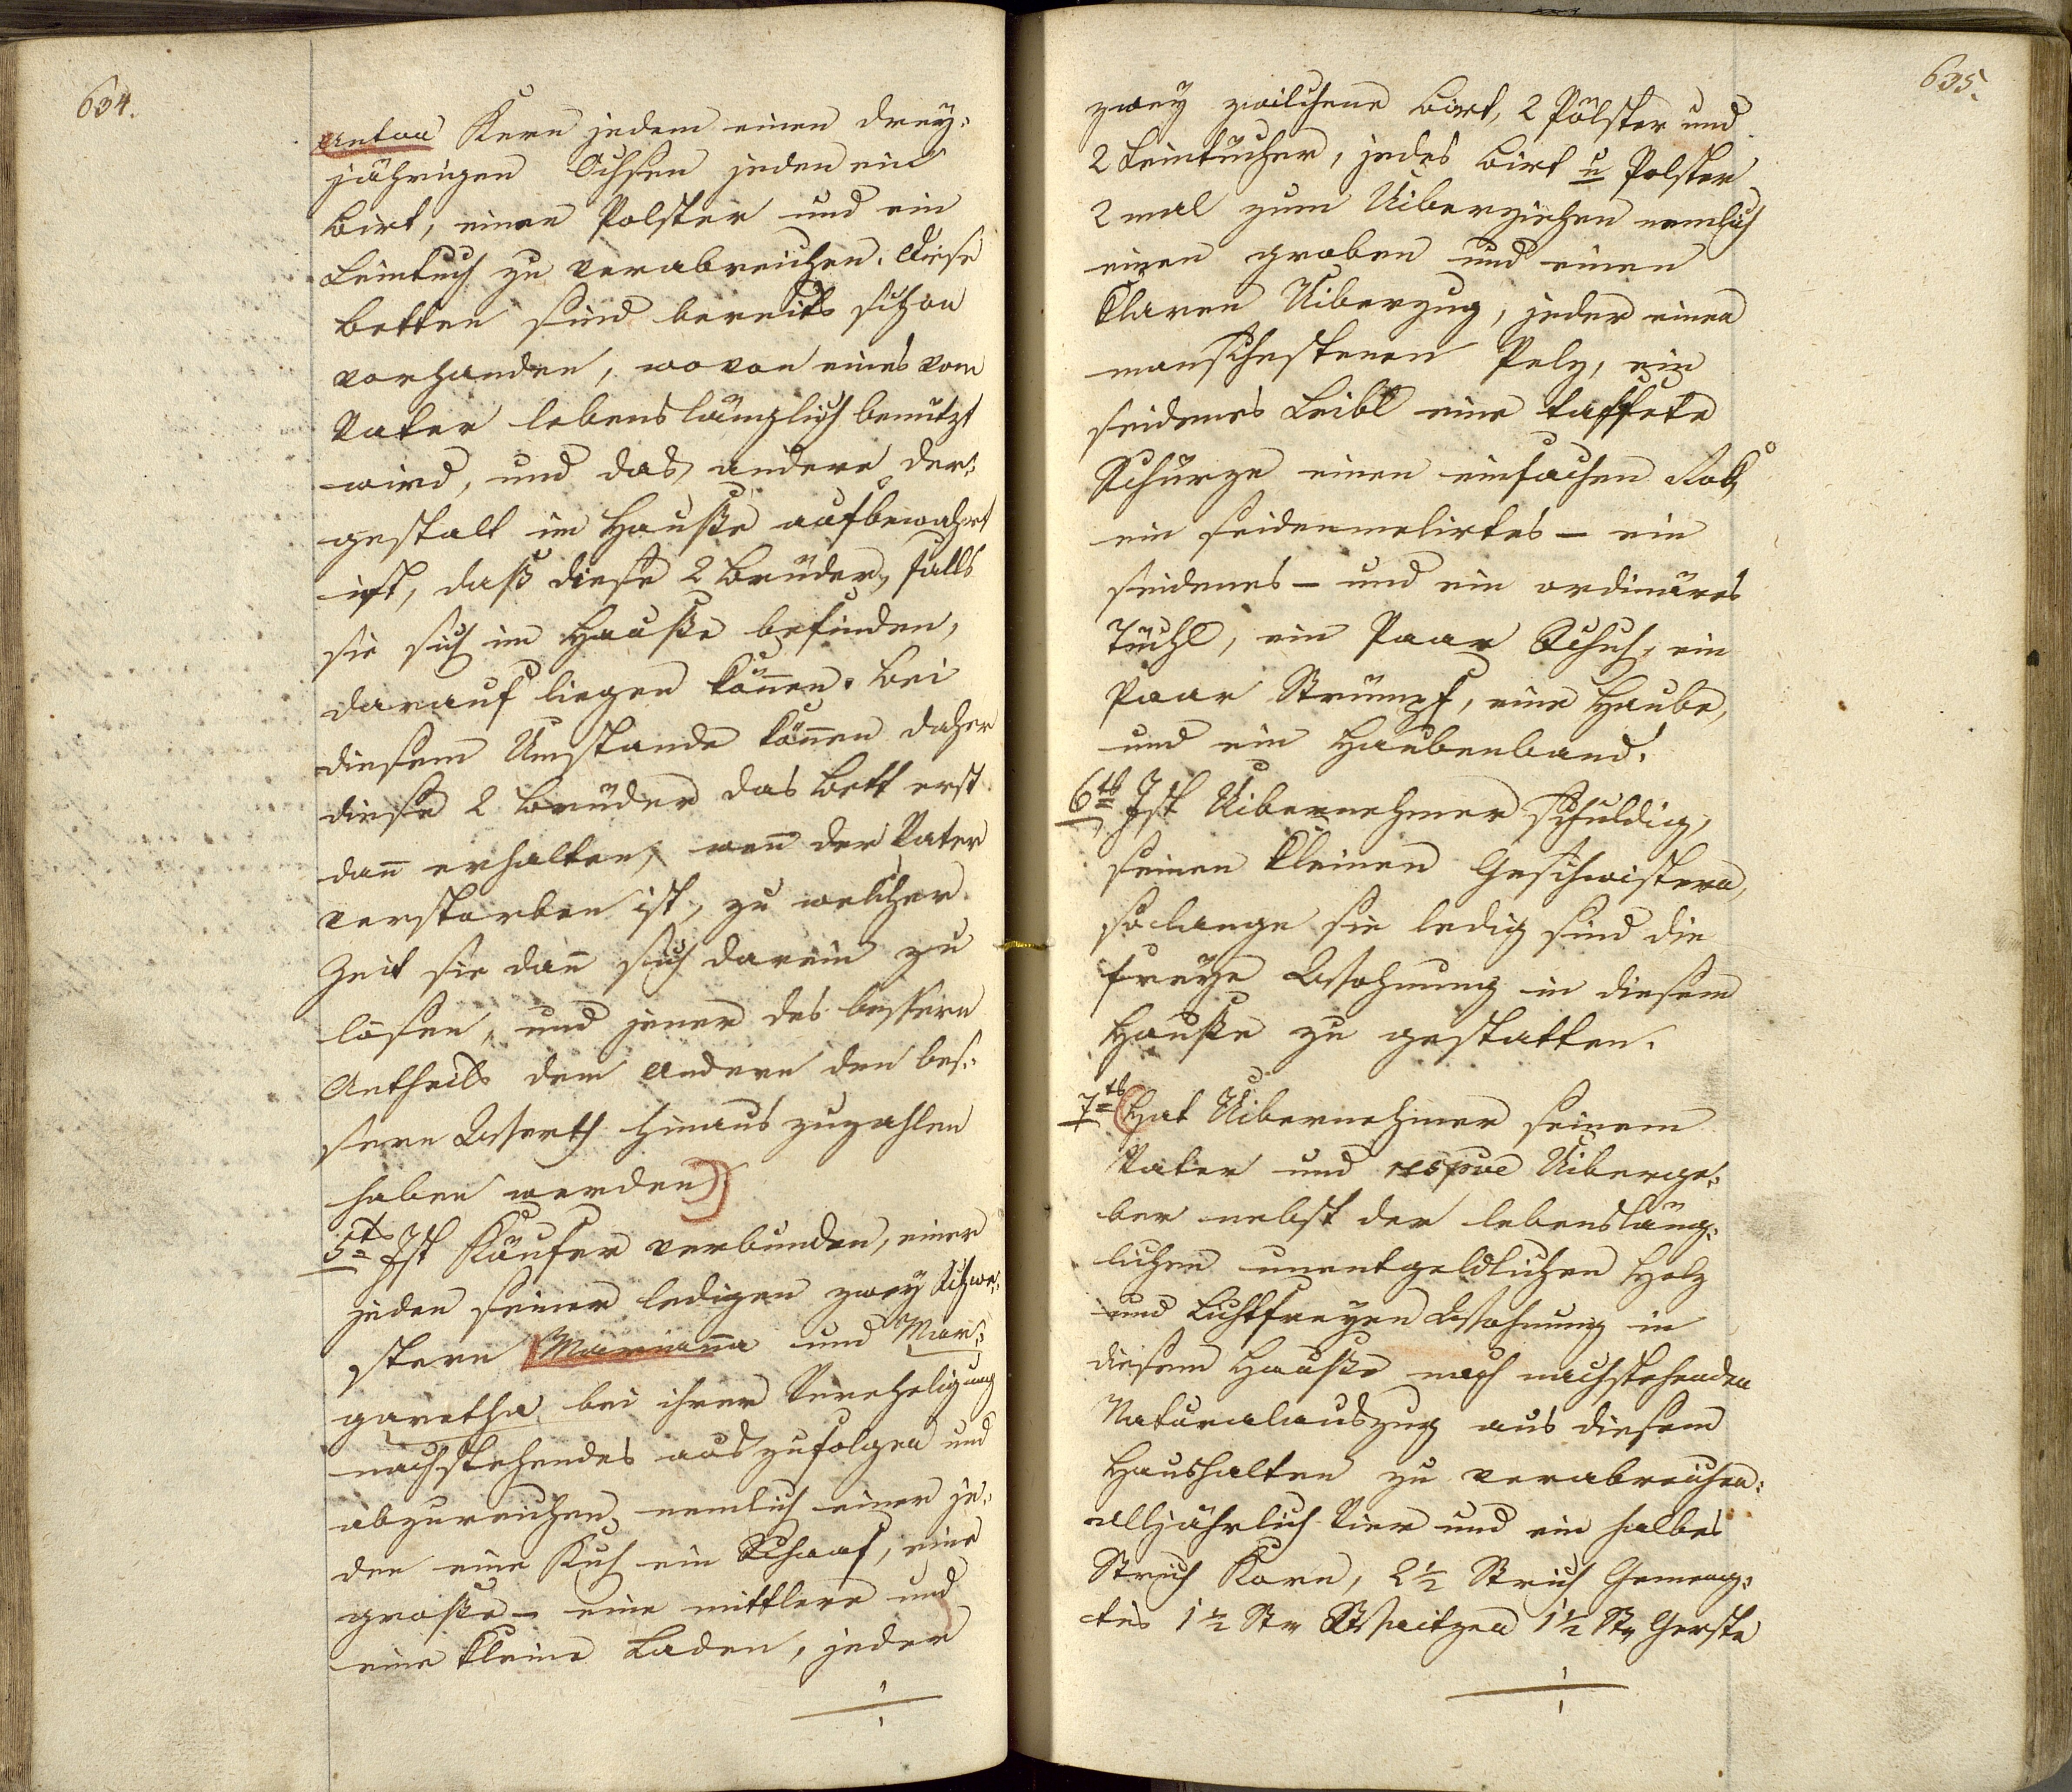 634.
Anton Kern jedem einen drey-
jährigen Ochsen jeden ein
Birt, einen Polster und ein
Leintuch zu verabreichen. Diese
Betten sind bereits schon
vorhanden, wovon eines vom
Vater lebenslänglich benützt
wird, und das andere der-
gestalt im Hauße aufbewahrt
ist, daß diese 2 Brüder, falls
sie sich im Hauße befinden,
darauf liegen können. Bei
diesem Umstande können daher
diese 2 Brüder das Bett erst
dann erhalten, wenn der Vater
verstorben ist, zu welcher
Zeit sie dann sich darein zu
losen, und jener des bessern
Antheils dem Andern den bes-
sern Werth hinaus zuzahlen
haben werden)
5ts Ist Käufer verbunden, einer
jeden seiner ledigen zwey Schwe-
stern Marianna und Mar-
garetha bei ihrer Verehelichung
nachstehendes auszufolgen und
abzureichen, nemlich einer je-
den eine Kuh ein Schaaf, eine
große – eine mittlere und
eine kleine Laden, jeder
635.
zwey zwilchene Birt, 2 Pölster und
2 Leintücher, jedes Birt u Polster
2 mal zum Uiberziehen nemlich
einen groben und einen
klaren Uiberzug, jeder einen
manschestenen Pelz, ein
seidenes Leibl eine taffete
Schürze einen einfachen Rok,
ein seidenmelirtes – ein
seidenes – und ein ordinäres
Tüchl, ein Paar Schuh, ein
Paar Strümpf, eine Haube,
und ein Haubenband.
6tns Ist Uibernehmer schuldig,
seinen kleinen Geschwistern,
solange sie ledig sind die
freye Wohnung in diesem
Hauße zu gestatten.
7tns (Hat Uibernehmer seinem
Vater und respve Uiberge-
ber nebst der lebensläng-
lichen unentgeldlichen Holz
und Lichtfreyen Wohnung in
diesem Hauße noch nachstehenden
Naturalauszug aus diesem
Haushalten zu verabreichen:
alljährlich Vier und ein halbes
Strich Korn, 2½ Strich Gemeng-
tes 1½ Str Waitzen 1½ Str Gerste